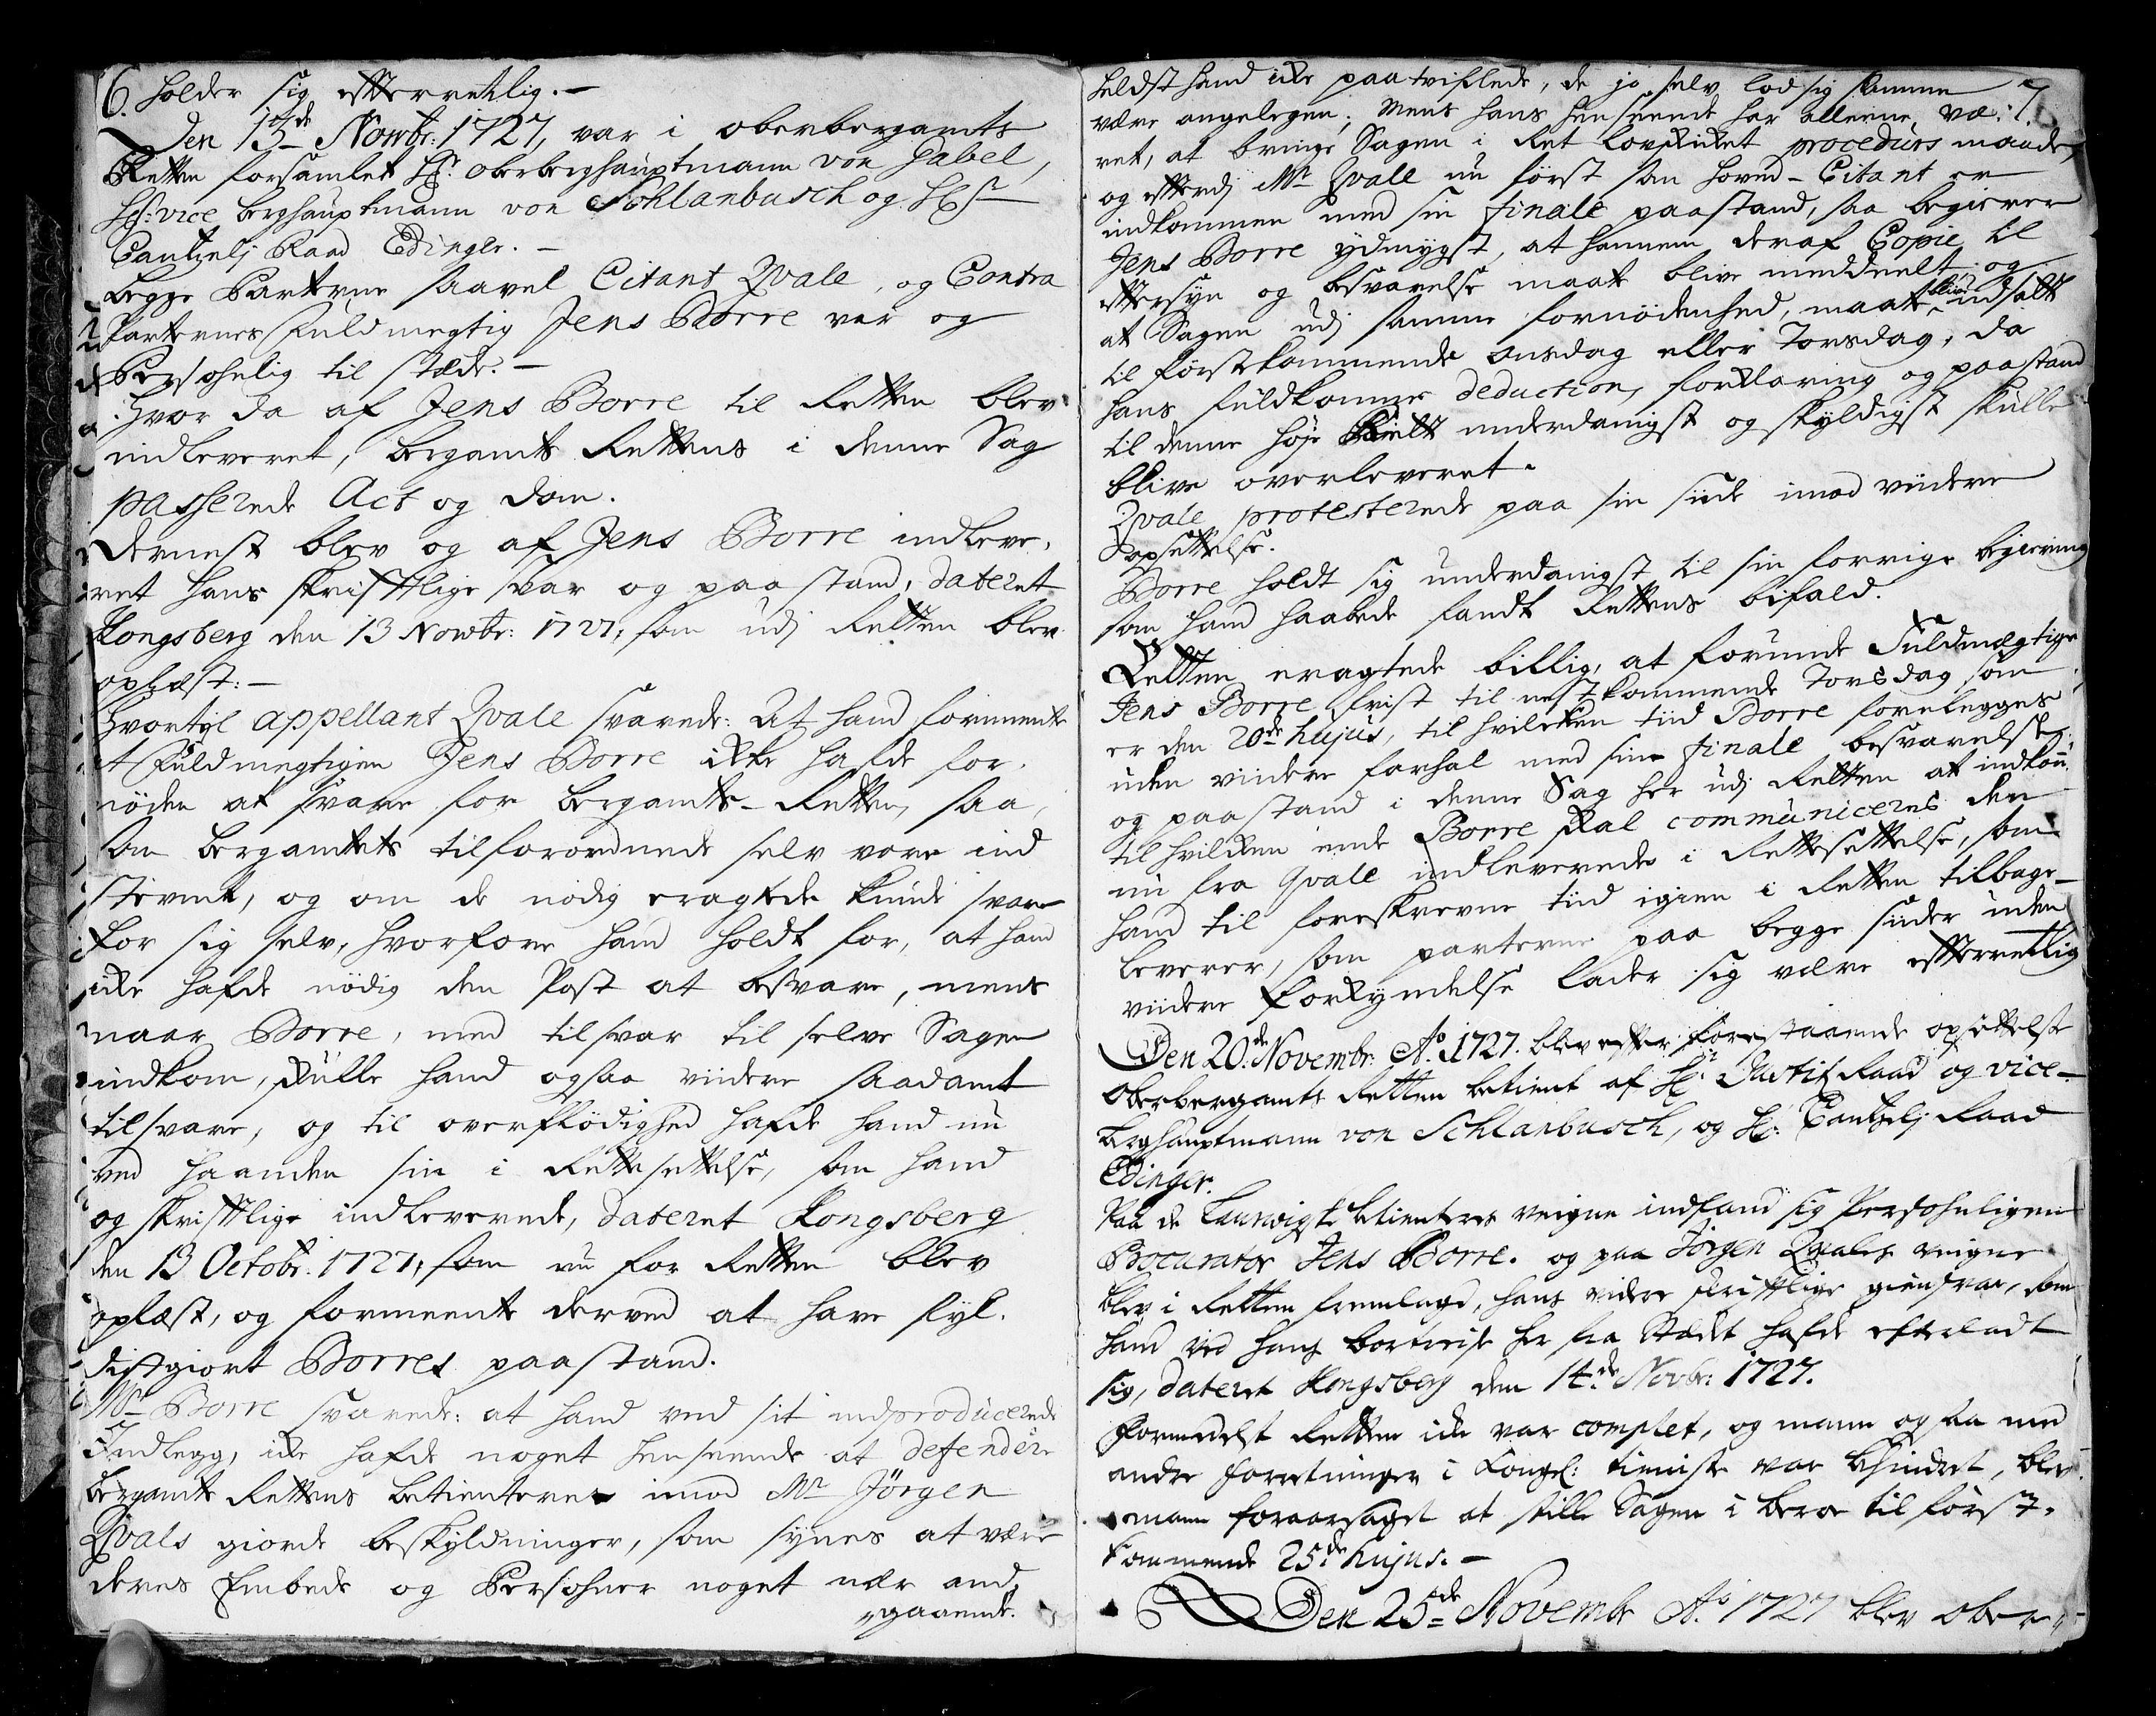 6. holder sig efterretlig. –
Den 13de Novbr: 1727, var i oberbergamts
Retten forsamlet Hr: oberberghauptmann von Gabel,
Hr: vice berghauptmann von Schlanbusch og Hr
Cantzelj Raad Edinger. –
begge Parterne saavel Citant Qvale, og Contra
Parternes fuldmegtig Jens Borre var og
Persohnlig til stæde. –
hvor da af Jens Borre til Retten blev
indleveret, bergamts Rettens i denne Sag
passerede Act og dom.
dernest blev og af Jens Borre indleve,
ret hans skrifftlige svar og paastand, dateret
Kongsberg den 13 Novbr: 1727, som udj Retten blev
oplæst: –
hvortil appellant Qvale svarede: At hand formeente
at fuldmegtigen Jens Borre ikke hafde for,
nöden at svare for bergamts-Retten, saa,
som bergamtets tilforordnede selv vare ind
stevnt, og om de nödig eragtede kunde svare
for sig selv, hvorfore hand holdt for, at hand
icke hafde nödig den Post at besvare, mens
naar Borre, med tilsvar til selve Sagen
indkom, skulle hand ogsaa viidere saadant
tilsvare, og til overflödighed hafde hand nu
ved haanden sin i Rettesettelse, som hand
og skrifftlige indleverede, dateret Kongsberg
den 13 Octobr. 1727, som nu for Retten blev
oplæst, og formeente derved at have fyl,
distgiort Borres paastand.
Mr Borre svarede: at hand ved sit indproducerede
Indlegg, icke hafde noget henseende at defendere
bergamts Rettens betienteres imod Mr Jörgen
Qvals giorde beskyldninger, som synes at være
deres Embede og Persohner noget nær and
gaaende.
heldst hand icke paatviflede, de jo selv lod sig samme 7.
være angelegen; Mens hans henseende har alleene væ:
ret, at bringe Sagen i ret lovskicket procedurs maade,
og efterdj Mr Qvale nu först som hoved-Citant er
indkommen med sin finale paastand, saa begierer
Jens Borre ydmygst, at hannem deraf Copie til
eftersyn og besvarelse maatte blive meddeelt og
at Sagen udj samme fornödenhed, maatte blive udsatt
til förstkommende onsdag eller Torsdag, da
hans fuldkomne deduction, forklaring og paastand
til denne höje Rett underdanigst og skyldigst skulle
blive overleveret.
Qvale protesterede paa sin siide imod viidere
opsettelse.
Borre holdt sig underdanigst til sin forrige begiering
som hand haabede fandt Rettens bifald.
Retten eragtede billig, at forunde Fuldmægtigen
Jens Borre frist til nestkommende Torsdag som
er den 20de hujus, til hvilcken tiid Borre forelegges
uden viidere forhal med sin finale besvarelse
og paastand i denne Sag her udj Retten at indkom.
til hvilcken ende Borre skal communiceres den
nu fra Qvale indleverede i Rettesettelse, som
hand til foreskrevne tiid igien i Retten tilbage-
leverer, som parterne paa begge siider uden
viidere forkyndelse lader sig være efterretlig
Den 20de Novembr: Ao 1727. blev efter forestaaende opsettelse
Oberbergamts Retten betient af Hr. Justitz Raad og vice-
berghauptmann von Schlanbusch, og Hr: Cantzelj Raad
Edinger.
Paa de Laurvigske betienteres veigne indfand sig Persohnligen
Procurator Jens Borre. og paa Jörgen Qvales veigne
blev i Retten fremlagd, hans videre skrifftlige giensvar, som
hand ved hans bortreise her fra Stædet hafde efterladt
sig, dateret Kongsberg den 14de Novbr: 1727.
formedelst Retten icke var complet, og mann ogsaa med
andre forretninger i Kongl: tieniste var behindret, blev
mann foraarsaget at stille Sagen i beroe til först-
kommende 25de hujus. –
Den 25de Novembr Ao 1727 blev ober-